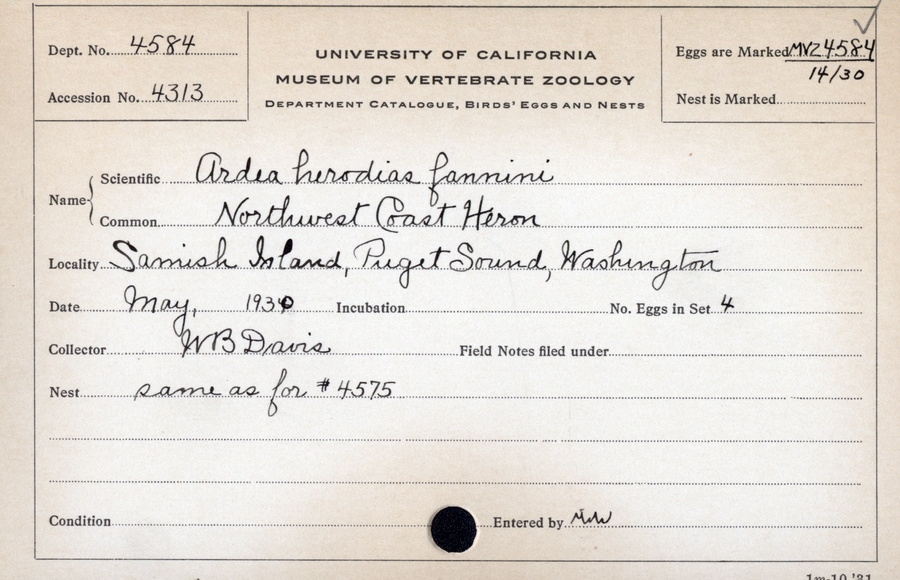 Dept. No. 4584
Accession No. 4313
UNIVERSITY OF CALIFORNIA
MUSEUM OF VERTEBRATE ZOOLOGY
DEPARTMENT CATALOGUE, BIRDS' EGGS AND NESTS
Eggs are Marked MVZ4584
14/30
Nest is Marked
Name Scientific Ardea herodias fannini
Common Northwest Coast Heron
Locality Samish Island, Puget Sound, Washington
Date May, 1930 Incubation No. Eggs in Set 4
Collector WB Davis Field Notes filed under
Nest same as for #4575
Condition Entered by
1m-10 '31